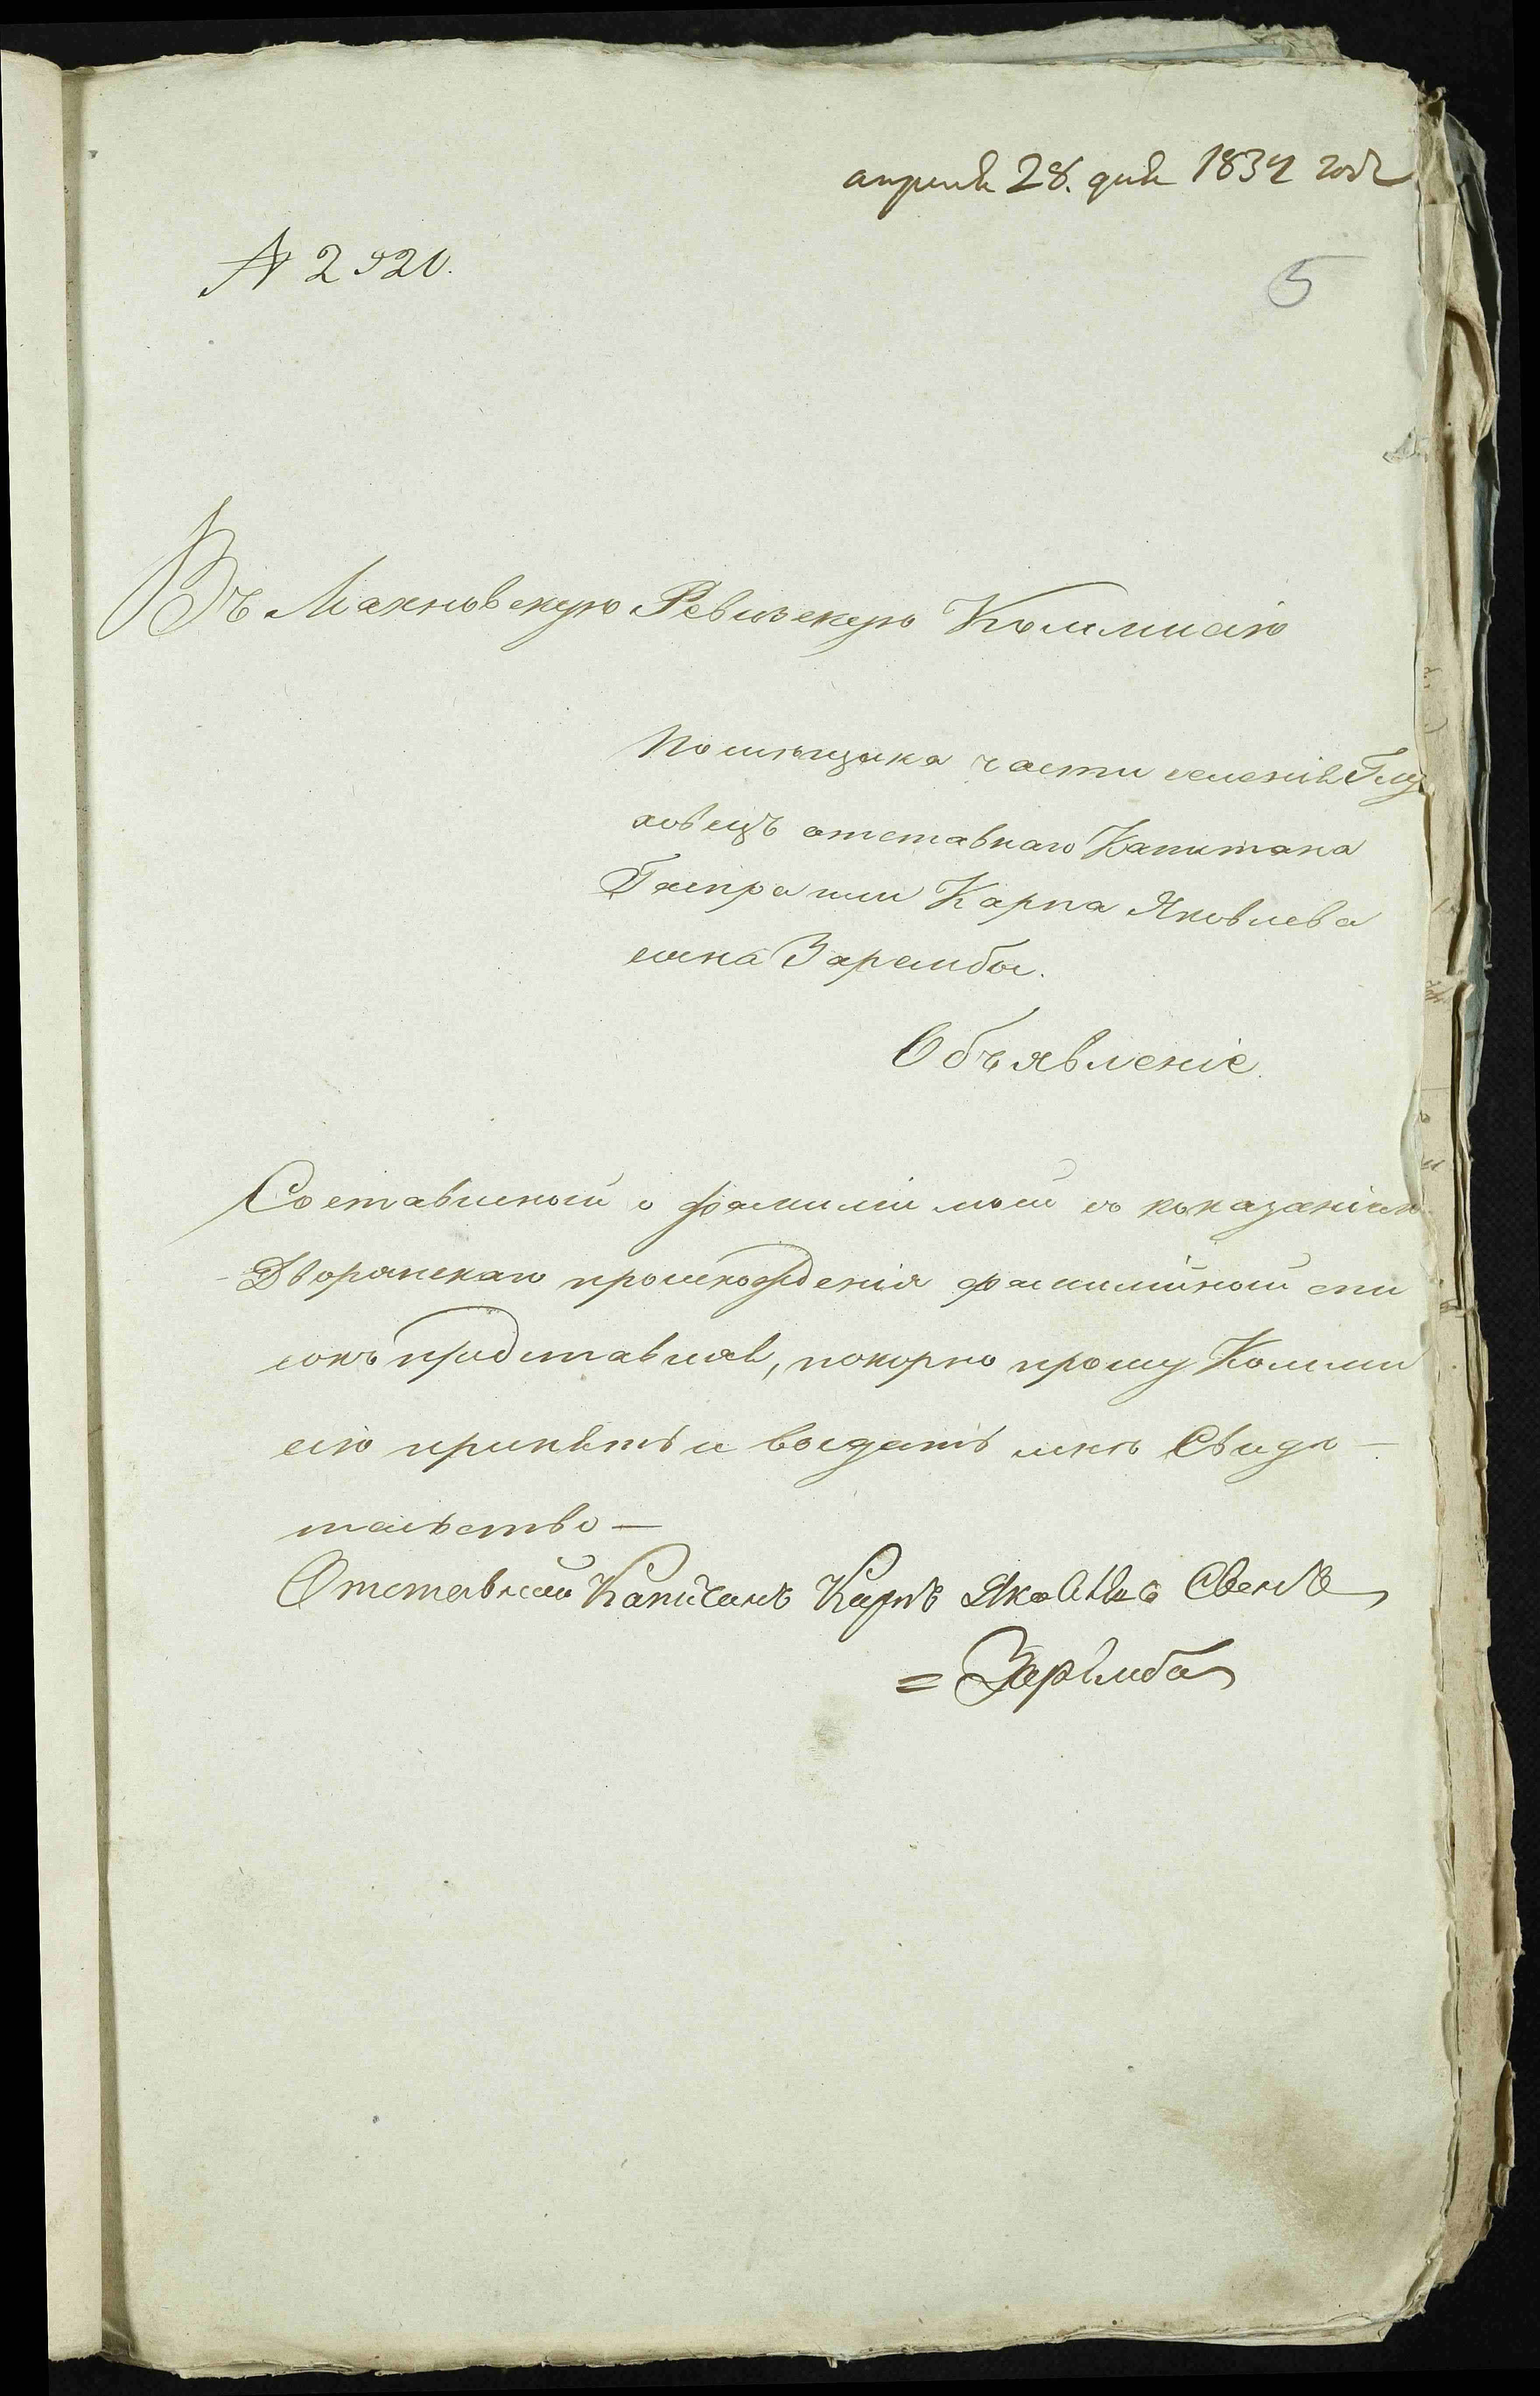 апреля 28. дня 1834 года
№ 2920.
5
Въ Махновскую Ревизскую Коммисію
Помѣщика части селенія Глу
ховецъ отставнаго Капитана
Гаспра или Карпа Яковлева
сына Зарембы.
Объявленіе.
Составленный о фамиліи моей съ показаніемъ
Дворянскаго происхожденія фамилійный спи
сокъ представляя, покорно прошу Комми
сію принять и выдать мнѣ Свидѣ—
тельство—
Отставной Капитанъ Карпъ Яковлевъ Сынъ
= Заремба